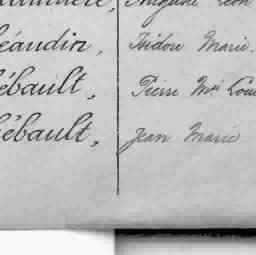 éandin, Isidore Marie.
ébault, Pierre Mie Loui
ébault, Jean Marie